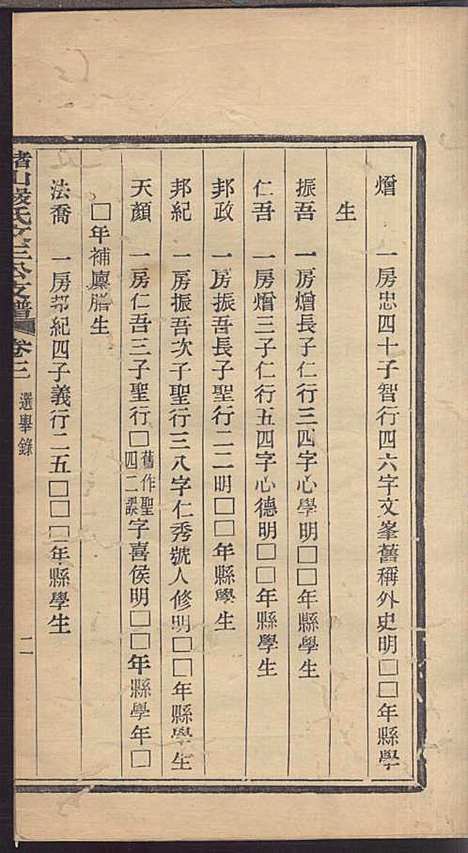 熷　一房忠四十子智行四六字文峯舊稱外史明□□年縣學
生
振吾　一房熷長子仁行三四字心學明□□年縣學生
仁吾　一房熷三子仁行五四字心德明□□年縣學生
邦政　一房振吾長子聖行二二明□□年縣學生
邦紀　一房振吾次子聖行三八字仁秀號人修明□□年縣學生
天顏　一房仁吾三子聖行□舊作聖四二誤字喜侯明□□年縣學年□
□年補廩膳生
法喬　一房邦紀四子義行二五□□□年縣學生
山嚴氏文三公支譜　卷三　選舉錄　二